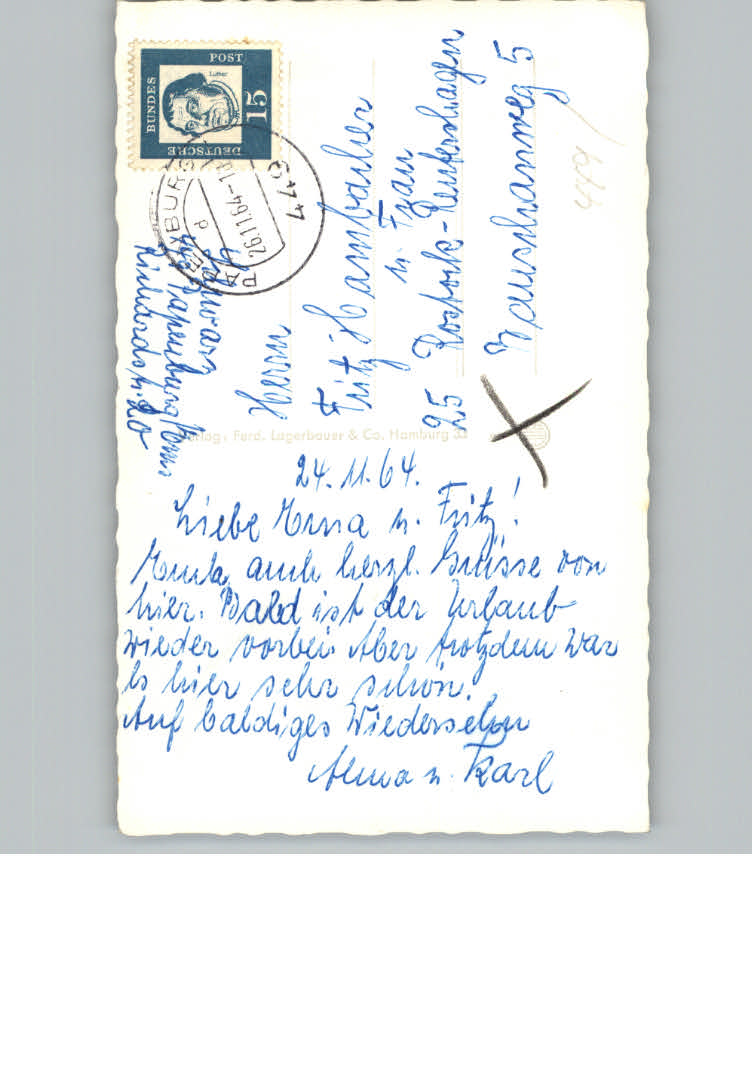 DEUTSCHE
BUNDES
POST
Luther
15
449
PAPENBURG
d
26.11.64-1
Schwarz
Papenburg/Ems
Richardstr. 20
Herrn
Fritz Hambacher
u. Frau
25 Rostock-Reutershagen
5
Verlag: Ferd. Lagerbauer & Co. Hamburg
24.11.64.
Liebe Erna u. Fritz!
Euch auch herzl. Grüsse von
hier. Bald ist der Urlaub
wieder vorbei. Aber trotzdem war
es hier sehr schön.
Auf baldiges Wiedersehn
Alma u. Karl